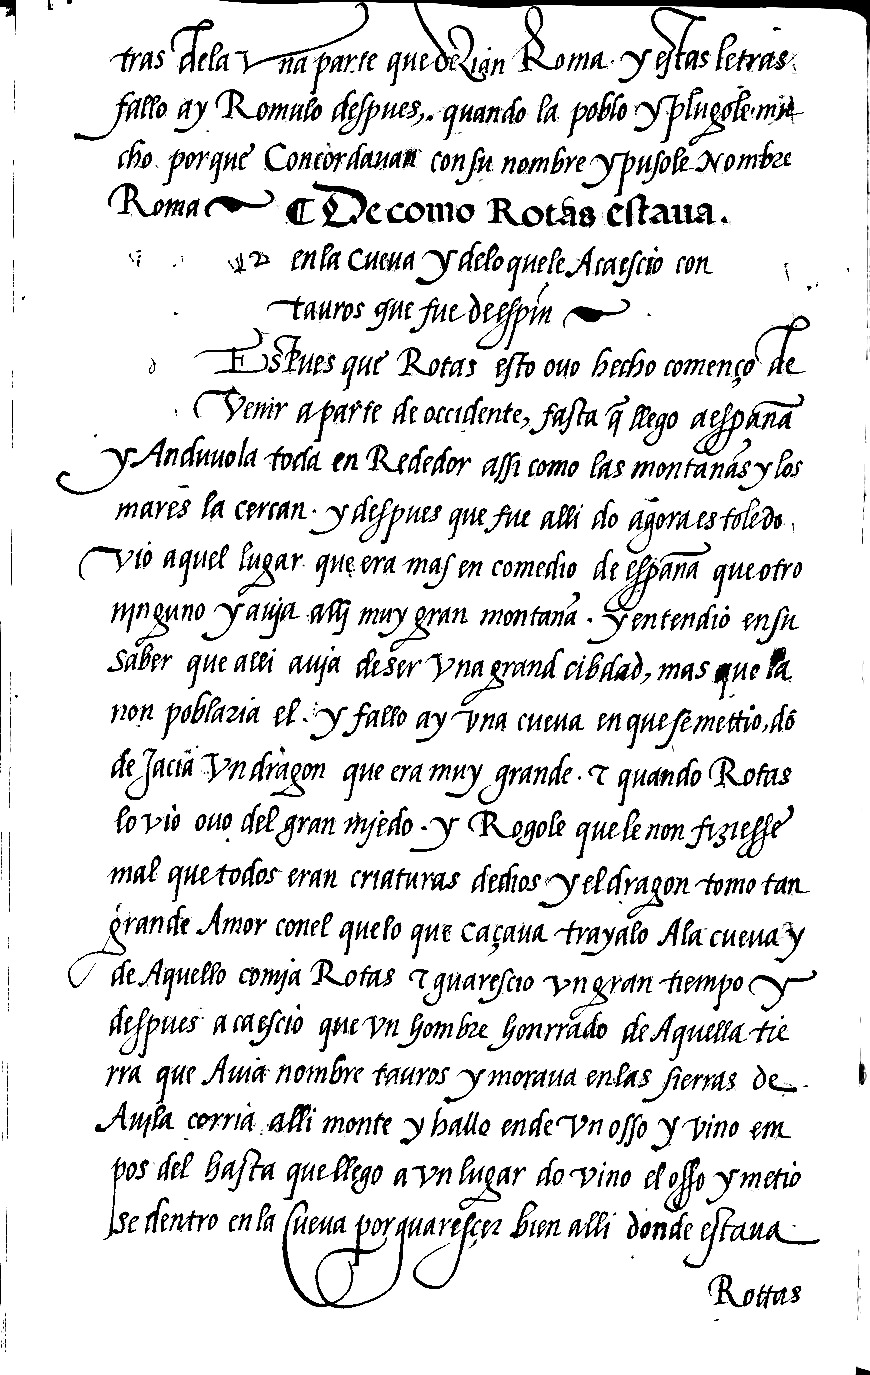 tras dela vna parte que dezian Roma. y estas letras
fallo ay Romulo despues, quando la poblo y plugole mu
cho porque Concordauan con su nombre y pusole Nombre
Roma ¶ De como Rotas estaua.
en la Cueua y delo que le Acaescio con
tauros que fue de espin
Espues que Rotas esto ouo hecho començo de
Venir a parte de occidente, fasta q̃ llego a españa
y Anduuola toda en Rededor assi como las montañas y los
mares la cercan. y despues que fue alli do agora es toledo
vio aquel lugar que era mas en comedio de españa que otro
ninguno y auia alli muy gran montaña. y entendio en su
saber que alli auja de ser vna grand cibdad, mas que la
non poblaria el. y fallo ay vna cueua en que se mettio, dõ
de Jacia Vn dragon que era muy grande. τ quando Rotas
lo vio ouo del gran mjedo. y Rogole que le non fiziesse
mal que todos eran criaturas de dios y el dragon tomo tan
grande Amor con el que lo que caçaua trayalo Ala cueua y
de Aquello comja Rotas τ guarescio vn gran tiempo y
despues acaescio que vn hombre honrrado de Aquella tie
rra que Auia nombre tauros y moraua en las sierras de
Aujla corria alli monte y hallo ende vn osso y vino em
pos del hasta que llego a vn lugar do vino el osso y metio
se dentro en la Cueua por guarescer bien alli donde estaua
Rottas